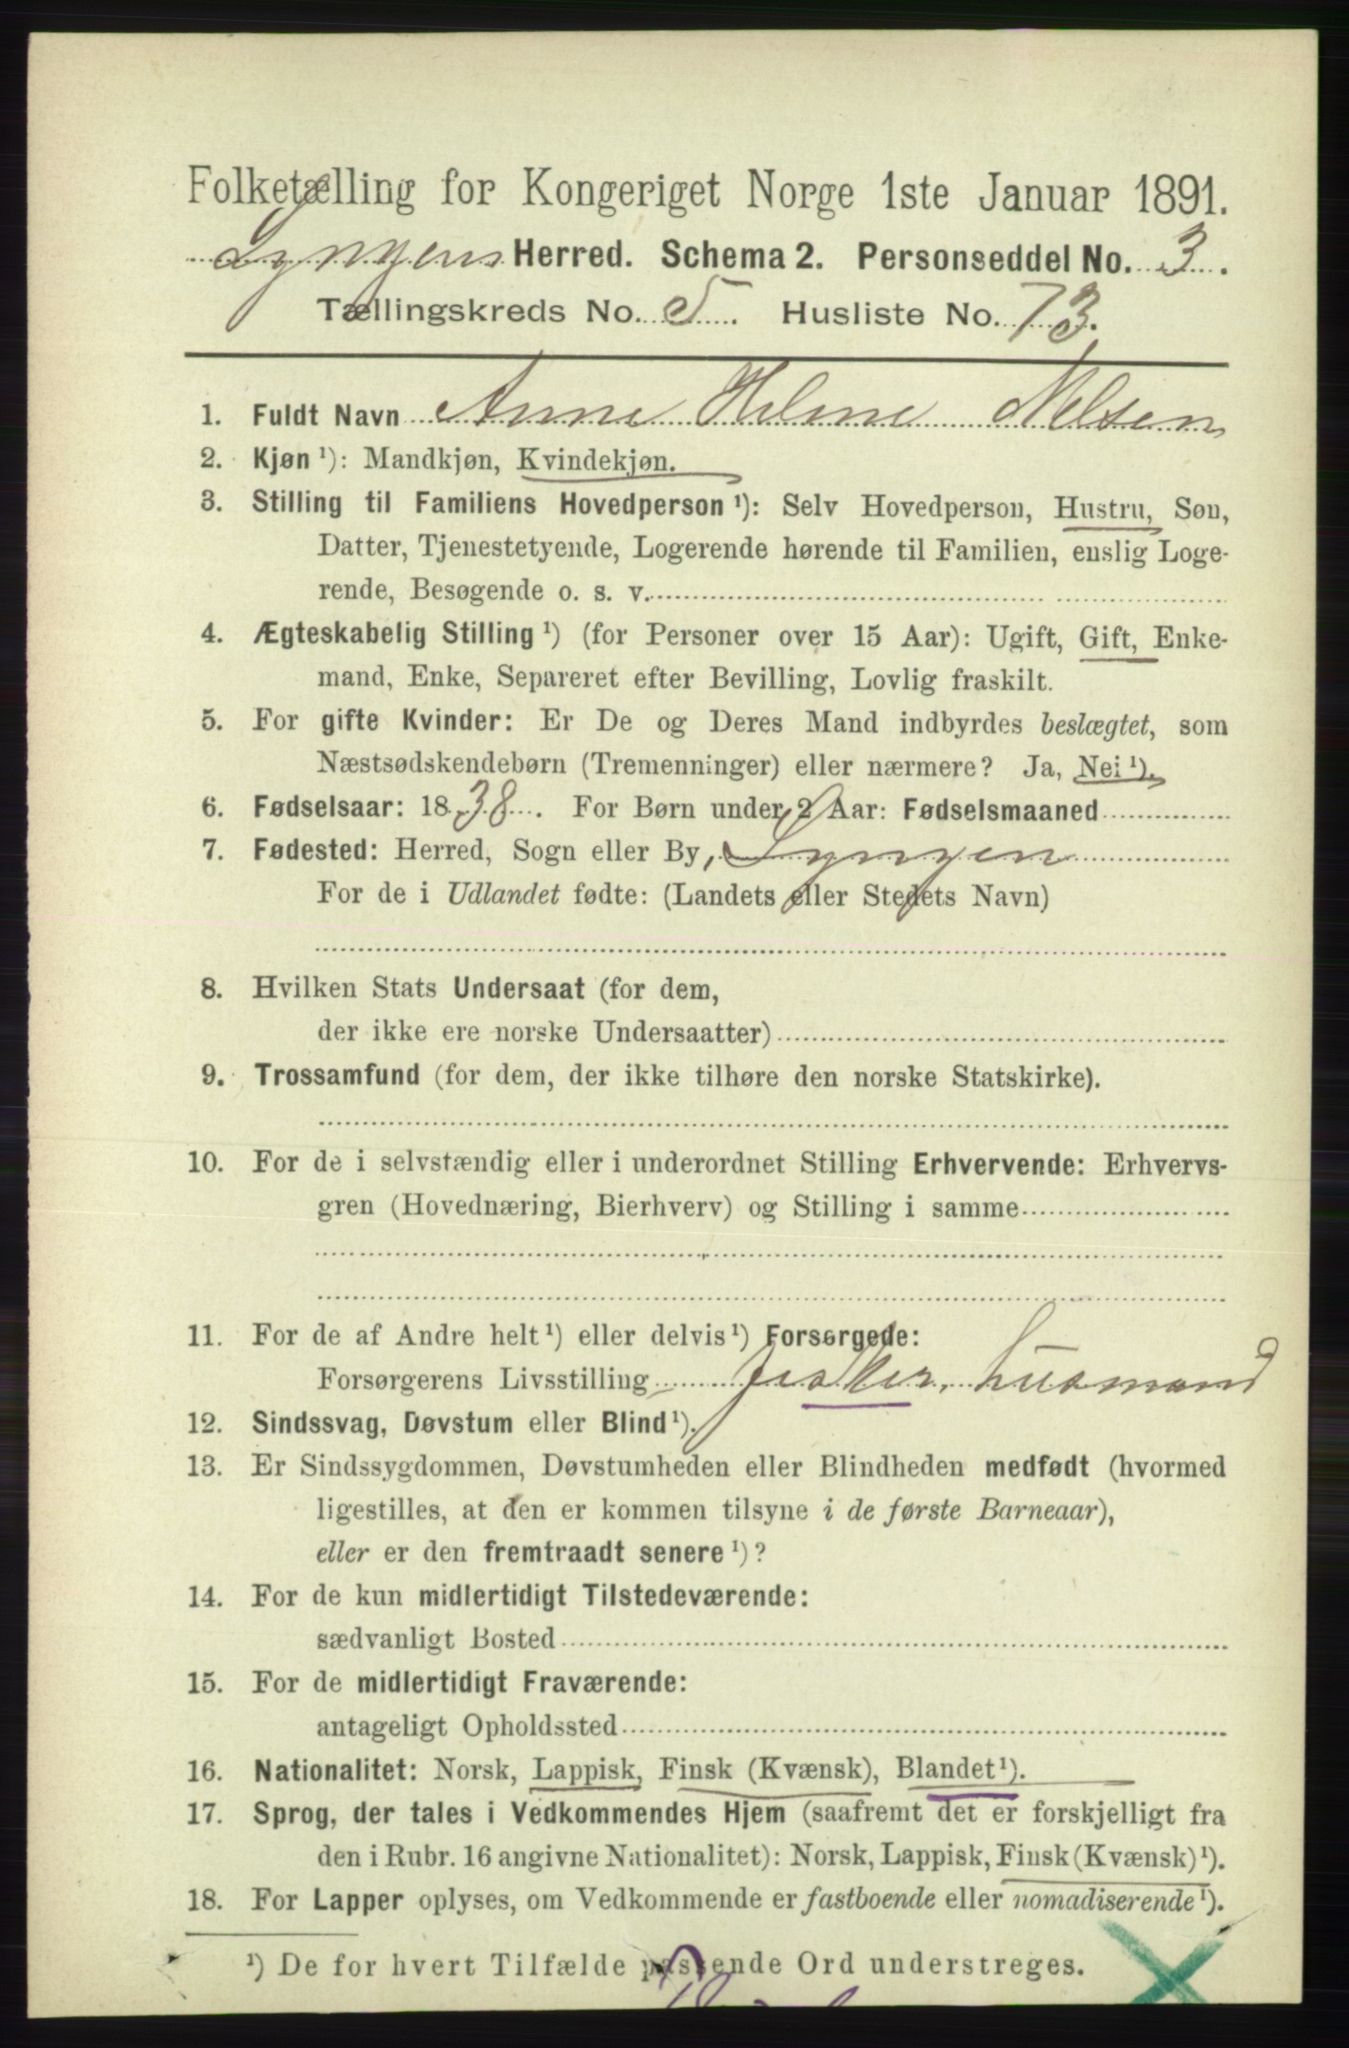 Folketælling for Kongeriget Norge 1ste Januar 1891.
Lyngens Herred. Schema 2. Personseddel No. 3.
Tællingskreds No. 5. Husliste No. 73.
1. Fuldt Navn Anne Helene Nilsen
2. Kjøn ¹): Mandkjøn, Kvindekjøn.
3. Stilling til Familiens Hovedperson ¹): Selv Hovedperson, Hustru, Søn,
Datter, Tjenestetyende, Logerende hørende til Familien, enslig Loge-
rende, Besøgende o. s. v.
4. Ægteskabelig Stilling ¹) (for Personer over 15 Aar): Ugift, Gift, Enke-
mand, Enke, Separeret efter Bevilling, Lovlig fraskilt.
5. For gifte Kvinder: Er De og Deres Mand indbyrdes beslægtet, som
Næstsødskendebørn (Tremenninger) eller nærmere? Ja, Nei ¹).
6. Fødselsaar: 1838. For Børn under 2 Aar: Fødselsmaaned
7. Fødested: Herred, Sogn eller By, Lyngen
For de i Udlandet fødte: (Landets eller Stedets Navn)
8. Hvilken Stats Undersaat (for dem,
der ikke ere norske Undersaatter)
9. Trossamfund (for dem, der ikke tilhøre den norske Statskirke).
10. For de i selvstændig eller i underordnet Stilling Erhvervende: Erhvervs-
gren (Hovednæring, Bierhverv) og Stilling i samme
11. For de af Andre helt ¹) eller delvis ¹) Forsørgede:
Forsørgerens Livsstilling fisker, husmand
12. Sindssvag, Døvstum eller Blind ¹).
13. Er Sindssygdommen, Døvstumheden eller Blindheden medfødt (hvormed
ligestilles, at den er kommen tilsyne i de første Barneaar),
eller er den fremtraadt senere ¹)?
14. For de kun midlertidigt Tilstedeværende:
sædvanligt Bosted
15. For de midlertidigt Fraværende:
antageligt Opholdssted
16. Nationalitet: Norsk, Lappisk, Finsk (Kvænsk), Blandet ¹).
17. Sprog, der tales i Vedkommendes Hjem (saafremt det er forskjelligt fra
den i Rubr. 16 angivne Nationalitet): Norsk, Lappisk, Finsk (Kvænsk) ¹).
18. For Lapper oplyses, om Vedkommende er fastboende eller nomadiserende ¹).
¹) De for hvert Tilfælde passende Ord understreges.